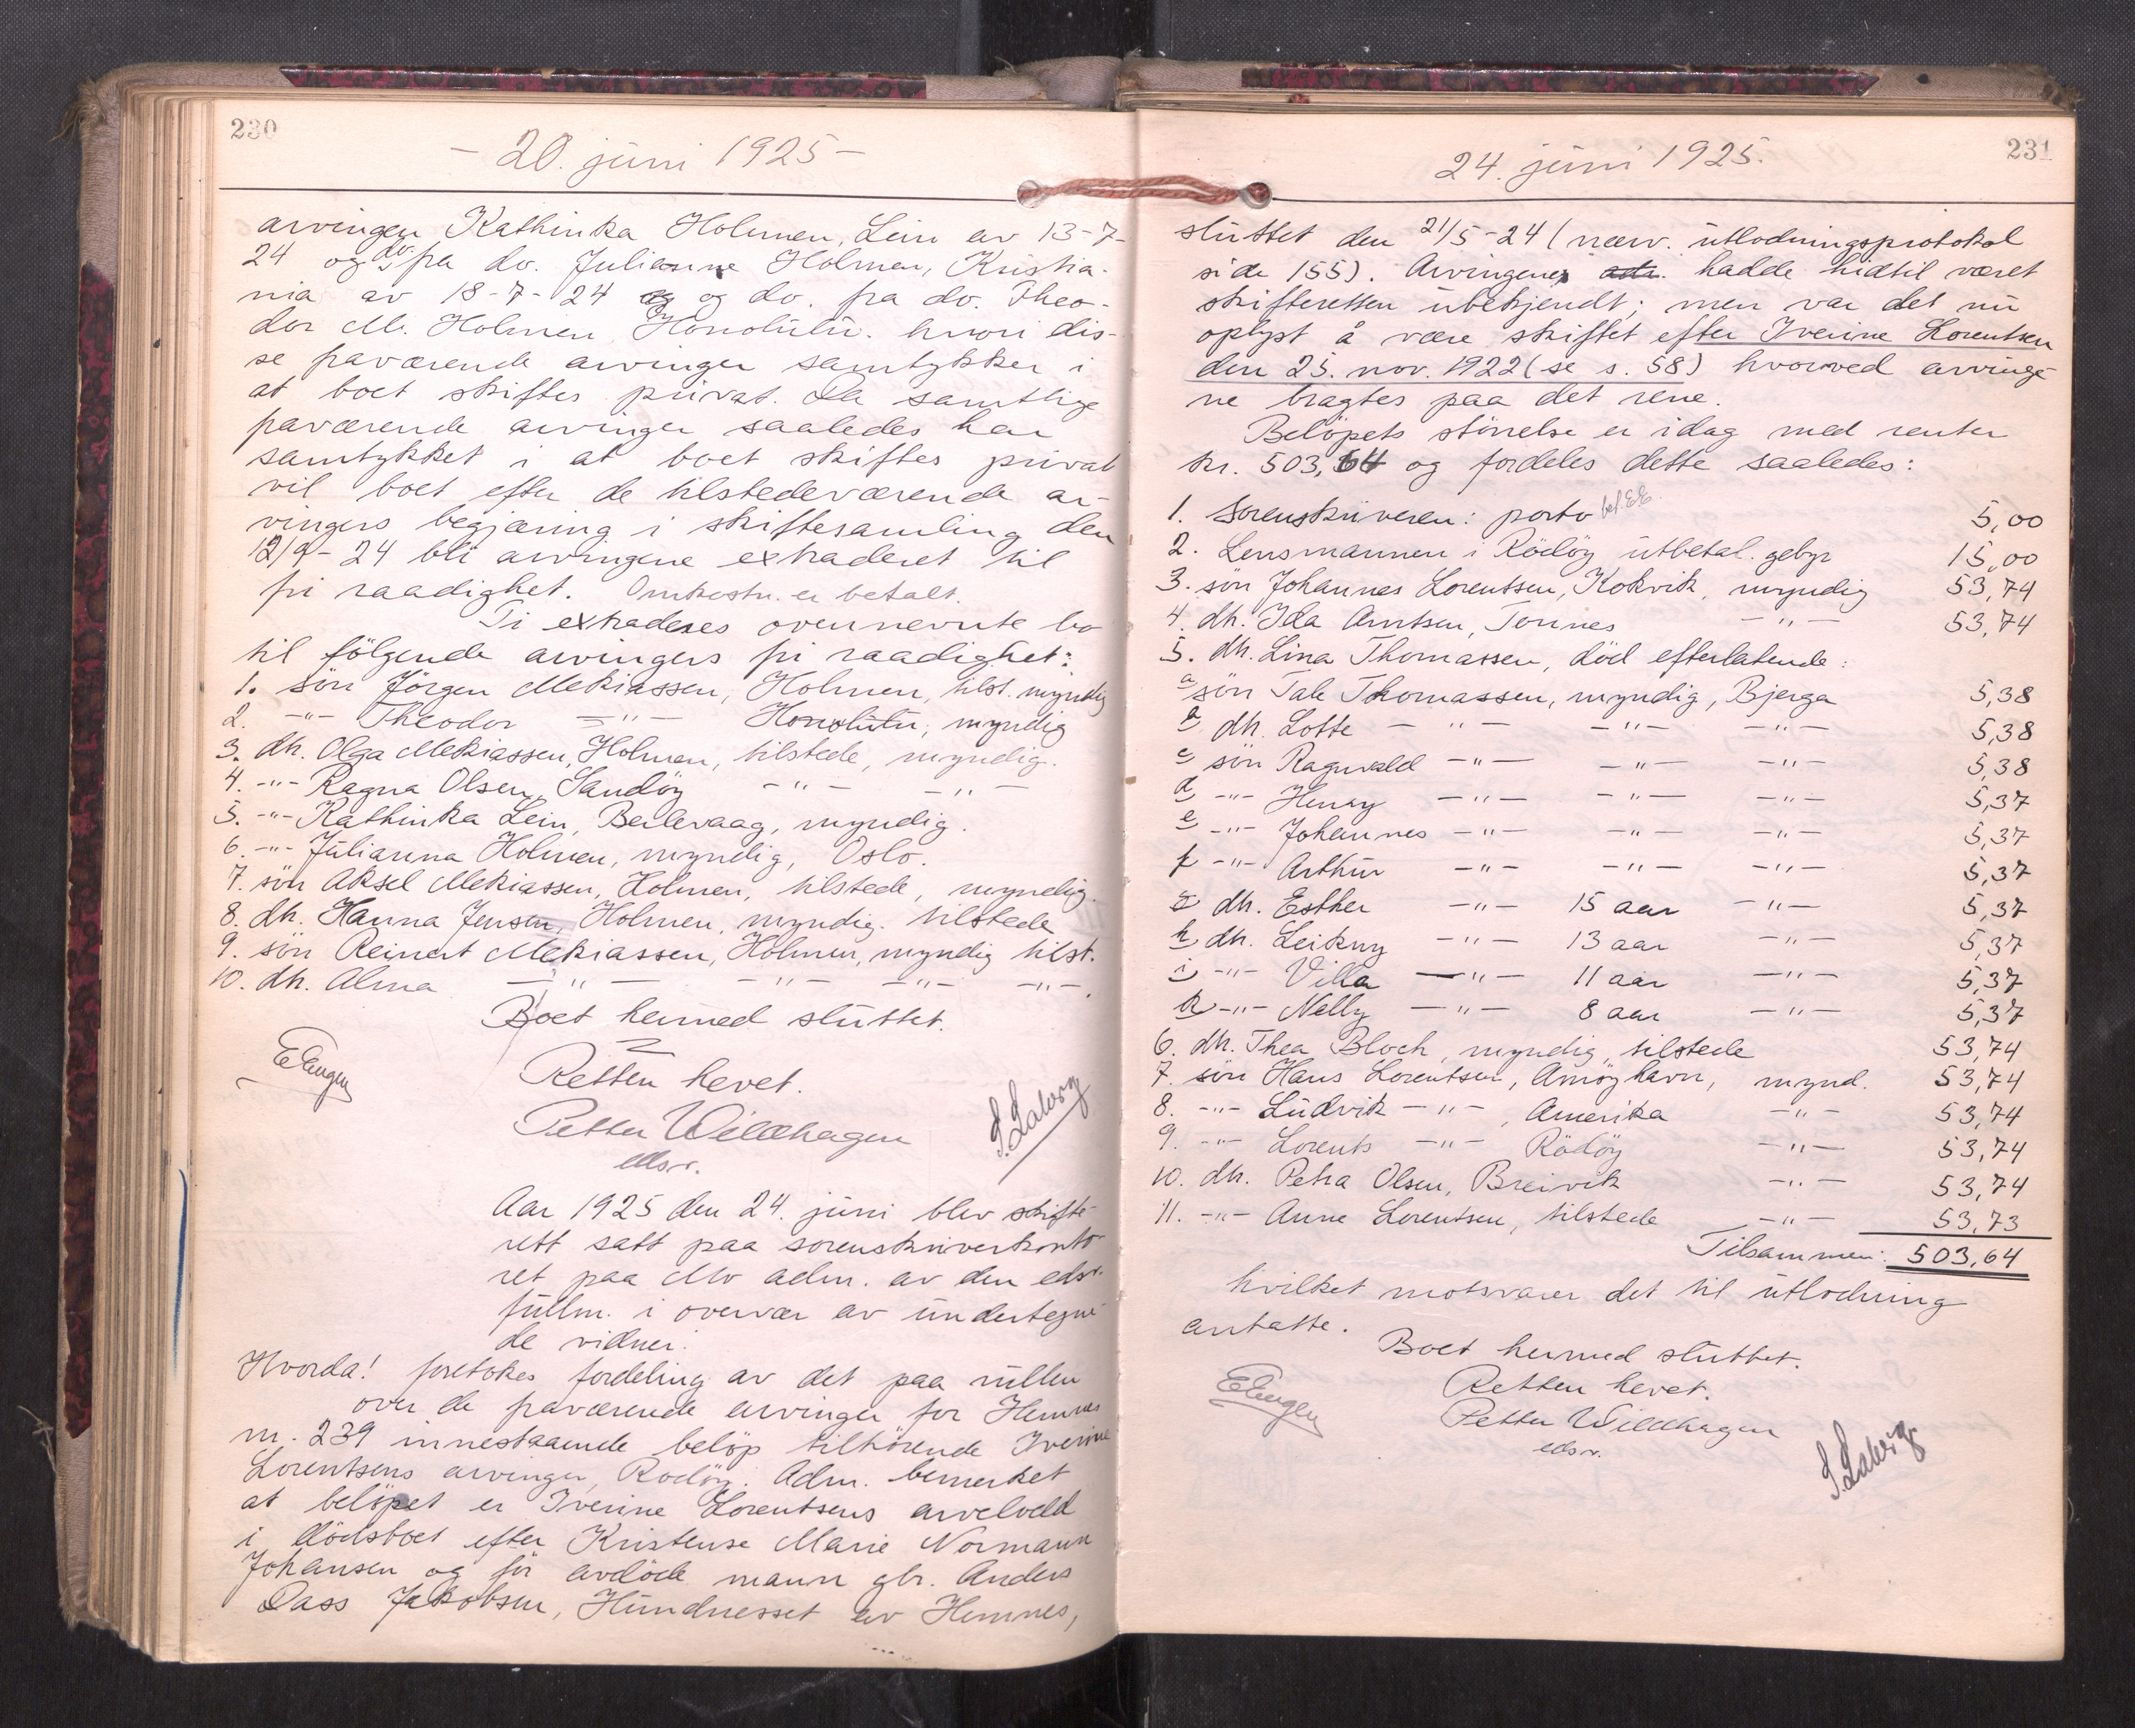 230
- 20. juni 1925 -
arvingen Kathinka Holmen, Lein av 13-7-
24 og do. fra do. Julianne Holmen, Kristia-
nia av 18-7-24 og do. fra do. Theo-
dor M. Holmen Honolulu. hvori dis-
se fraværende arvinger samtykker i
at boet skiftes privat. Da samtlige
fraværende arvinger saaledes har
samtykket i at boet skiftes privat
vil boet efter de tilstedeværende ar-
vingers begjæring i skiftesamling den
12/9-24 bli arvingene extraderet til
fri raadighet. Omkostn. er betalt.
Ti extraderes ovennevnte bo
til følgende arvingers fri raadighet:
1. søn Jørgen Mekiassen, Holmen, tilst. myndig
2. -"- Theodor -"- Honolulu, myndig
3. dtr. Olga Mekiassen, Holmen, tilstede, myndig.
4. -"- Ragna Olsen, Sandøy -"- -"-
5. -"- Kathinka Lein, Berlevaag, myndig.
6. -"- Julianna Holmen, myndig, Oslo.
7. søn Aksel Mekiassen, Holmen, tilstede, myndig.
8. dtr. Hanna Jensen, Holmen, myndig. tilstede
9. søn Reinert Mekiassen, Holmen, myndig tilst.
10. dtr. Alma -"- -"- -"- -"-.
Boet hermed sluttet.
Retten hevet.
Petter Willehagen
edsv.
Aar 1925 den 24. juni blev skifte-
rett satt paa sorenskriverkonto-
ret paa Mo adm. av den edsv.
fullm. i overvær av undertegne-
de vidner.
Hvorda! foretokes fordeling av det paa rullen
over de fraværende arvinger for Hemnes
nr. 239 innestaaende beløp tilhørende Iverine
Lorentsens arvinger, Rødøy. Adm. bemerket
at beløpet er Iverine Lorentsens arvelodd
i dødsboet efter Kristense Marie Normann
Johansen og før avdøde mann gbr. Anders
Dass Jakobsen, Hundnesset av Hemnes,
231
24. juni 1925.
sluttet den 21/5-24 (nærv. utlodningsprotokol
side 155). Arvingene adr. hadde hidtil været
skifteretten ubekjendt; men var det nu
oplyst å være skiftet efter Iverine Lorentsen
den 25. nov. 1922 (se s. 58) hvorved arvinge-
ne bragtes paa det rene.
Beløpets størrelse er idag med renter
kr. 503,64 og fordeles dette saaledes:
1. Sorenskriveren: porto 5,00
2. Lensmannen i Rødøy utbetal. gebyr 15,00
3. søn Johannes Lorentsen, Kokvik, myndig 53,74
4. dtr. Ida Arntsen, Tonnes -"- 53,74
5. dtr. Lina Thomassen, død efterlatende:
a søn Tale Thomassen, myndig, Bjerga 5,38
b dtr. Lotte -"- -"- -"- 5,38
c søn Ragnvald -"- -"- -"- 5,38
d -"- Henry -"- -"- -"- 5,37
e -"- Johannes -"- -"- -"- 5,37
f -"- Arthur -"- -"- -"- 5,37
g dtr. Esther -"- 15 aar -"- 5,37
h dtr. Leikny -"- 13 aar -"- 5,37
i -"- Villa -"- 11 aar -"- 5,37
k -"- Nelly -"- 8 aar -"- 5,37
6. dtr. Thea Bloch, myndig, tilstede 53,74
7. søn Hans Lorentsen, Amøyhavn, mynd. 53,74
8. -"- Ludvik -"-, Amerika -"- 53,74
9. -"- Lorents -"- Rødøy -"- 53,74
10. dtr. Petra Olsen, Breivik -"- 53,74
11. -"- Anne Lorentsen, tilstede -"- 53,73
Tilsammen: 503,64
hvilket motsvarer det til utlodning
antatte.
Boet hermed sluttet.
Retten hevet.
Petter Willehagen
edsv.